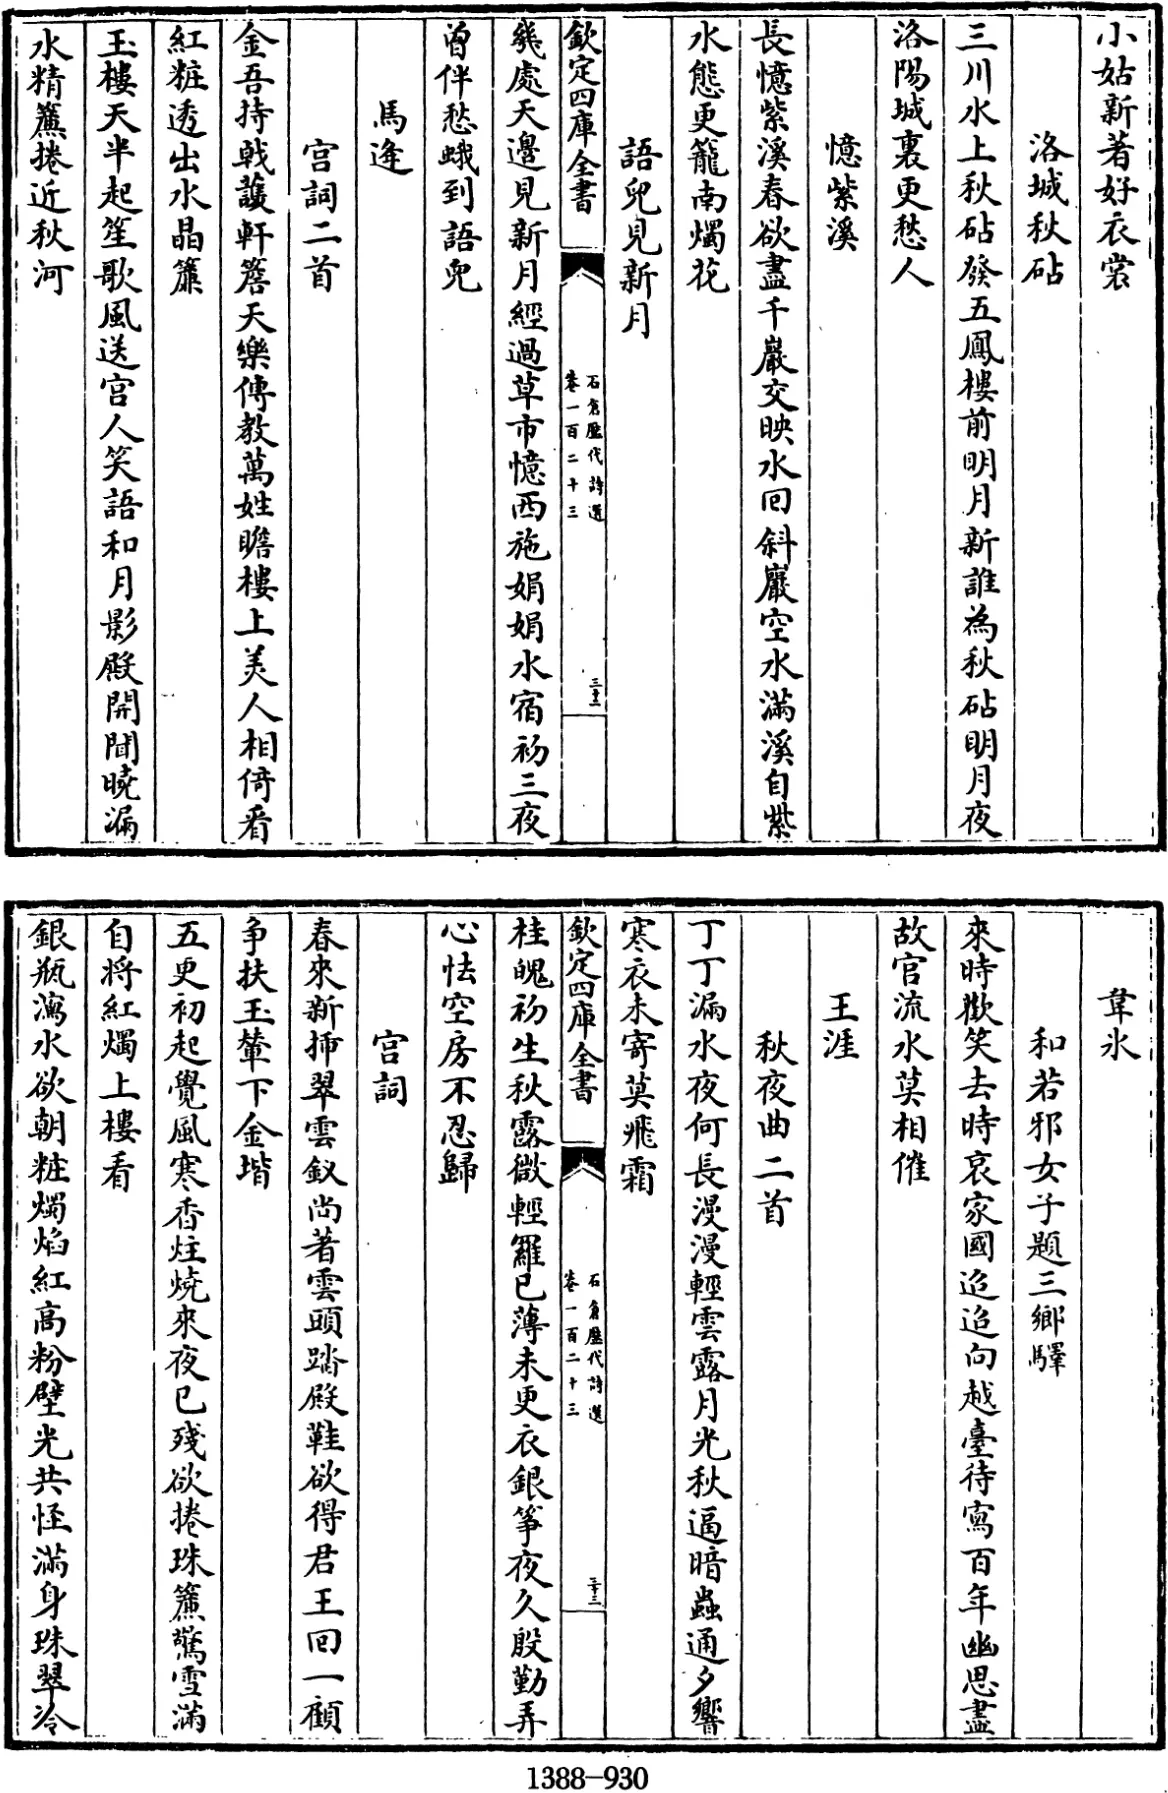 小姑新著好衣裳
洛城秋砧
三川水上秋砧發五鳳樓前明月新誰為秋砧明月夜
洛陽城裏更愁人
憶紫溪
長憶紫溪春欲盡千巖交映水囘斜巖空水滿溪自紫
水態更籠南燭花
語兒見新月
欽定四庫全書
石倉歷代詩選
卷一百二十三
幾處天邊見新月經過草市憶西施娟娟水宿初三夜
曾伴愁蛾到語兒
馬逢
宫詞二首
金吾持㦸護軒簷天樂傳教萬姓瞻樓上美人相倚看
紅粧透出水晶簾
玉樓天半起笙歌風送宫人笑語和月影殿開聞曉漏
水精簾捲近秋河
韋氷
和若邪女子題三鄉驛
來時歡笑去時哀家國迢迢向越臺待寫百年幽思盡
故宫流水莫相催
王涯
秋夜曲二首
丁丁漏水夜何長漫漫輕雲露月光秋逼暗蟲通夕響
寒衣未寄莫飛霜
欽定四庫全書
石倉歷代詩選
卷一百二十三
桂魄初生秋露微輕羅已薄未更衣銀箏夜久殷勤弄
心怯空房不忍歸
宫詞
春來新揷翠雲釵尚著雲頭踏殿鞋欲得君王囘一顧
争扶玉輦下金堦
五更初起覺風寒香炷燒來夜已殘欲捲珠簾驚雪滿
自將紅燭上樓看
銀瓶瀉水欲朝粧燭焰紅高粉壁光共怪滿身珠翠冷
1388-930